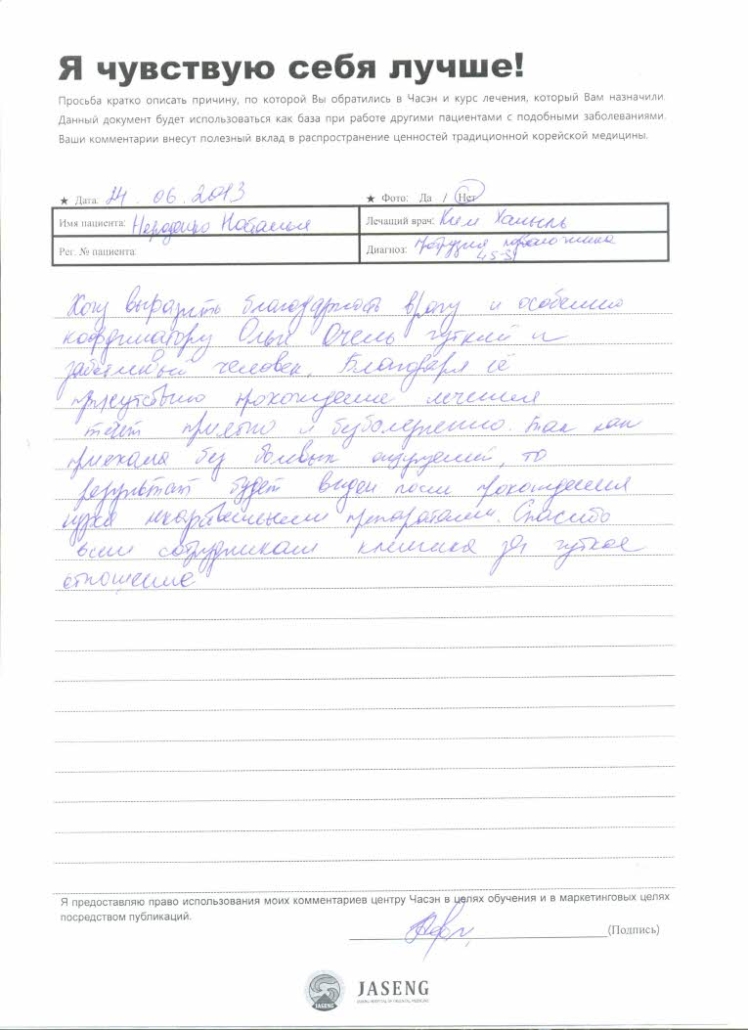 Я чувствую себя лучше!
Просьба кратко описать причину, по которой Вы обратились в Часэн и курс лечения, который Вам назначили.
Данный документ будет использоваться как база при работе другими пациентами с подобными заболеваниями.
Ваши комментарии внесут полезный вклад в распространение ценностей традиционной корейской медицины.
★ Дата: 24. 06. 2013 ★ Фото: Да / Нет
Имя пациента: Наталья Лечащий врач: Ким Ханыль
Рег. № пациента: Диагноз: Протрузия позвоночника
L5-S1
Хочу выразить благодарность врачу и особенно
координатору Ольге Очень чуткий и
заботливый человек. Благодаря её
присутствию прохождение лечения
приятно и безболезненно. Так как
приехала без болевых ощущений, то
результат будет виден после прохождения
курса лекарственными препаратами. Спасибо
всем сотрудникам клиники за чуткое
отношение
Я предоставляю право использования моих комментариев центру Часэн в целях обучения и в маркетинговых целях
посредством публикаций.
(Подпись)
JASENG